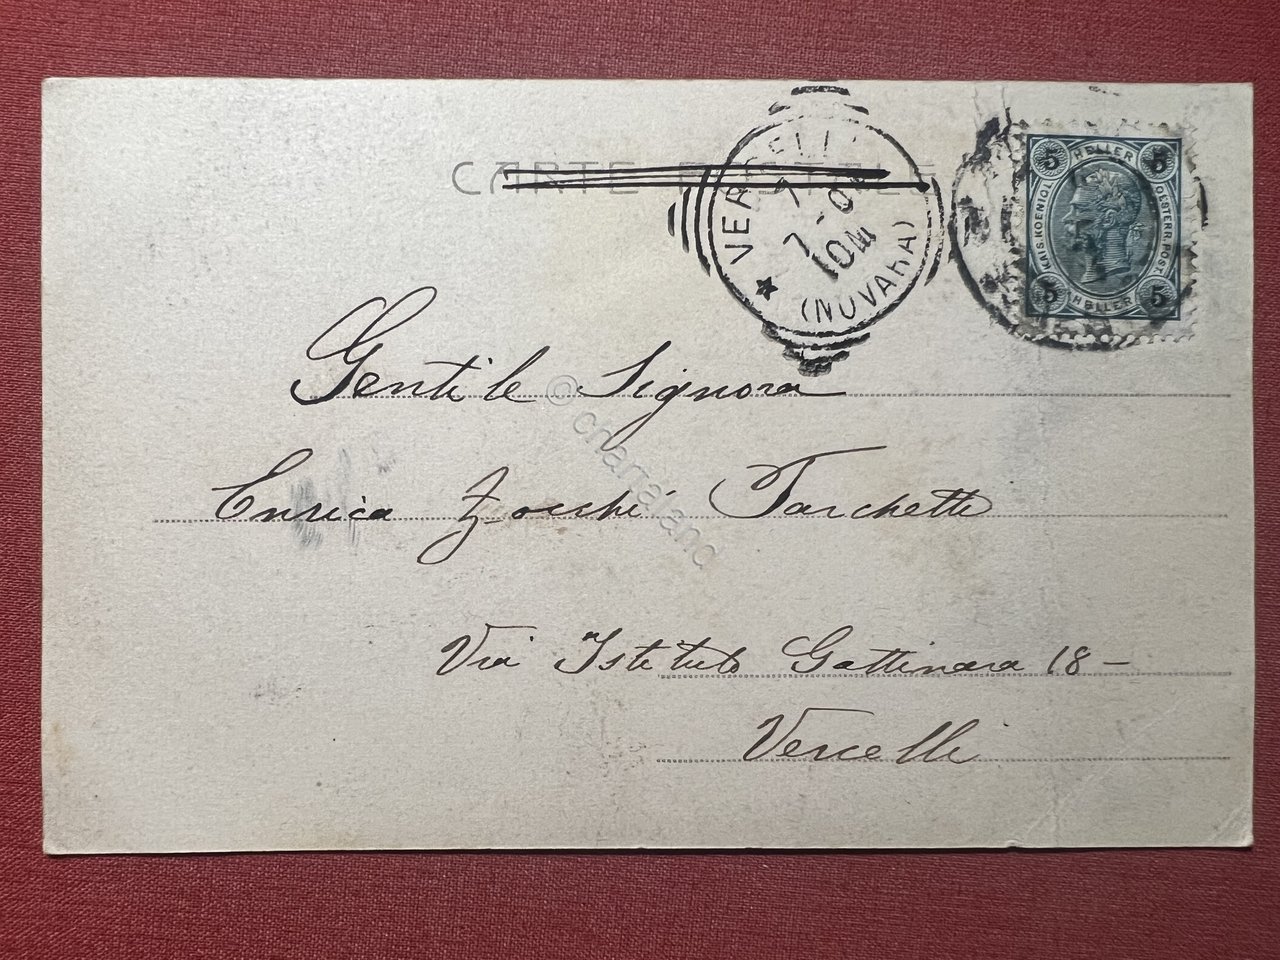 CARTE POSTALE
VERCELLI
7
7-0
10M
(NOVARA)
5 HELLER 5
KAIS. KOENIGL.
OESTERR. POST
5 HELLER 5
Gentile Signora
© chartaland
Enrica Zocchi Tarchetti
Via Istituto Gattinara 18-
Vercelli